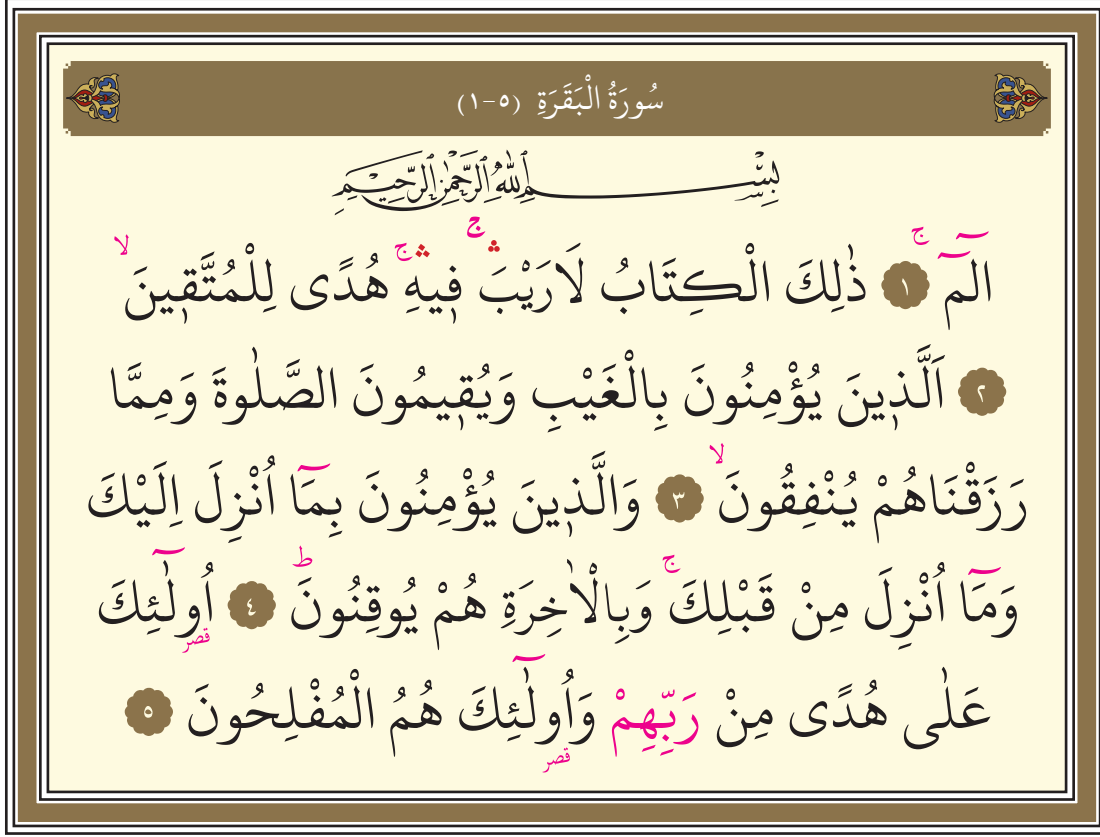 سُورَةُ الْبَقَرَةِ (١-٥)
بِسْمِ اللّٰهِ الرَّحْمٰنِ الرَّحِيمِ
الٓمٓ ۚ ﴿١﴾ ذٰلِكَ الْكِتَابُ لَارَيْبَۚۛ فٖيهِۚۛ هُدًى لِلْمُتَّقٖينَۙ
﴿٢﴾ اَلَّذٖينَ يُؤْمِنُونَ بِالْغَيْبِ وَيُقٖيمُونَ الصَّلٰوةَ وَمِمَّا
رَزَقْنَاهُمْ يُنْفِقُونَۙ ﴿٣﴾ وَالَّذٖينَ يُؤْمِنُونَ بِمَٓا اُنْزِلَ اِلَيْكَ
وَمَٓا اُنْزِلَ مِنْ قَبْلِكَۚ وَبِالْاٰخِرَةِ هُمْ يُوقِنُونَۜؕ ﴿٤﴾ اُو۬لٰٓئِكَ
قصر
عَلٰى هُدًى مِنْ رَبِّهِمْ وَاُو۬لٰٓئِكَ هُمُ الْمُفْلِحُونَ ﴿٥﴾
قصر